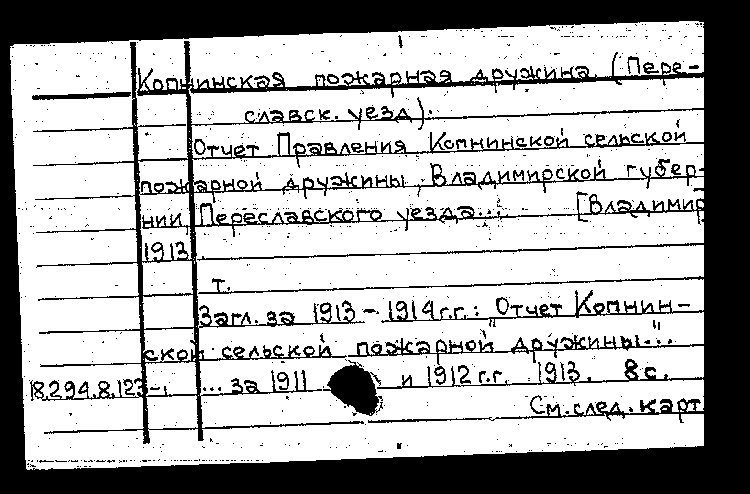 Копнинская пожарная дружина (Пере-
славск. уезд):
Отчет Правления Копнинской сельской
пожарной дружины, Владимирской губер-
нии, Переславского уезда... [Владимир
1913].
т.
Загл. за 1913 - 1914 г.г.: "Отчет Копнин-
ской сельской пожарной дружины..."
18.294.8.123-1. ... за 1911 и 1912 г.г. 1913. 8 с.
См. след. карт